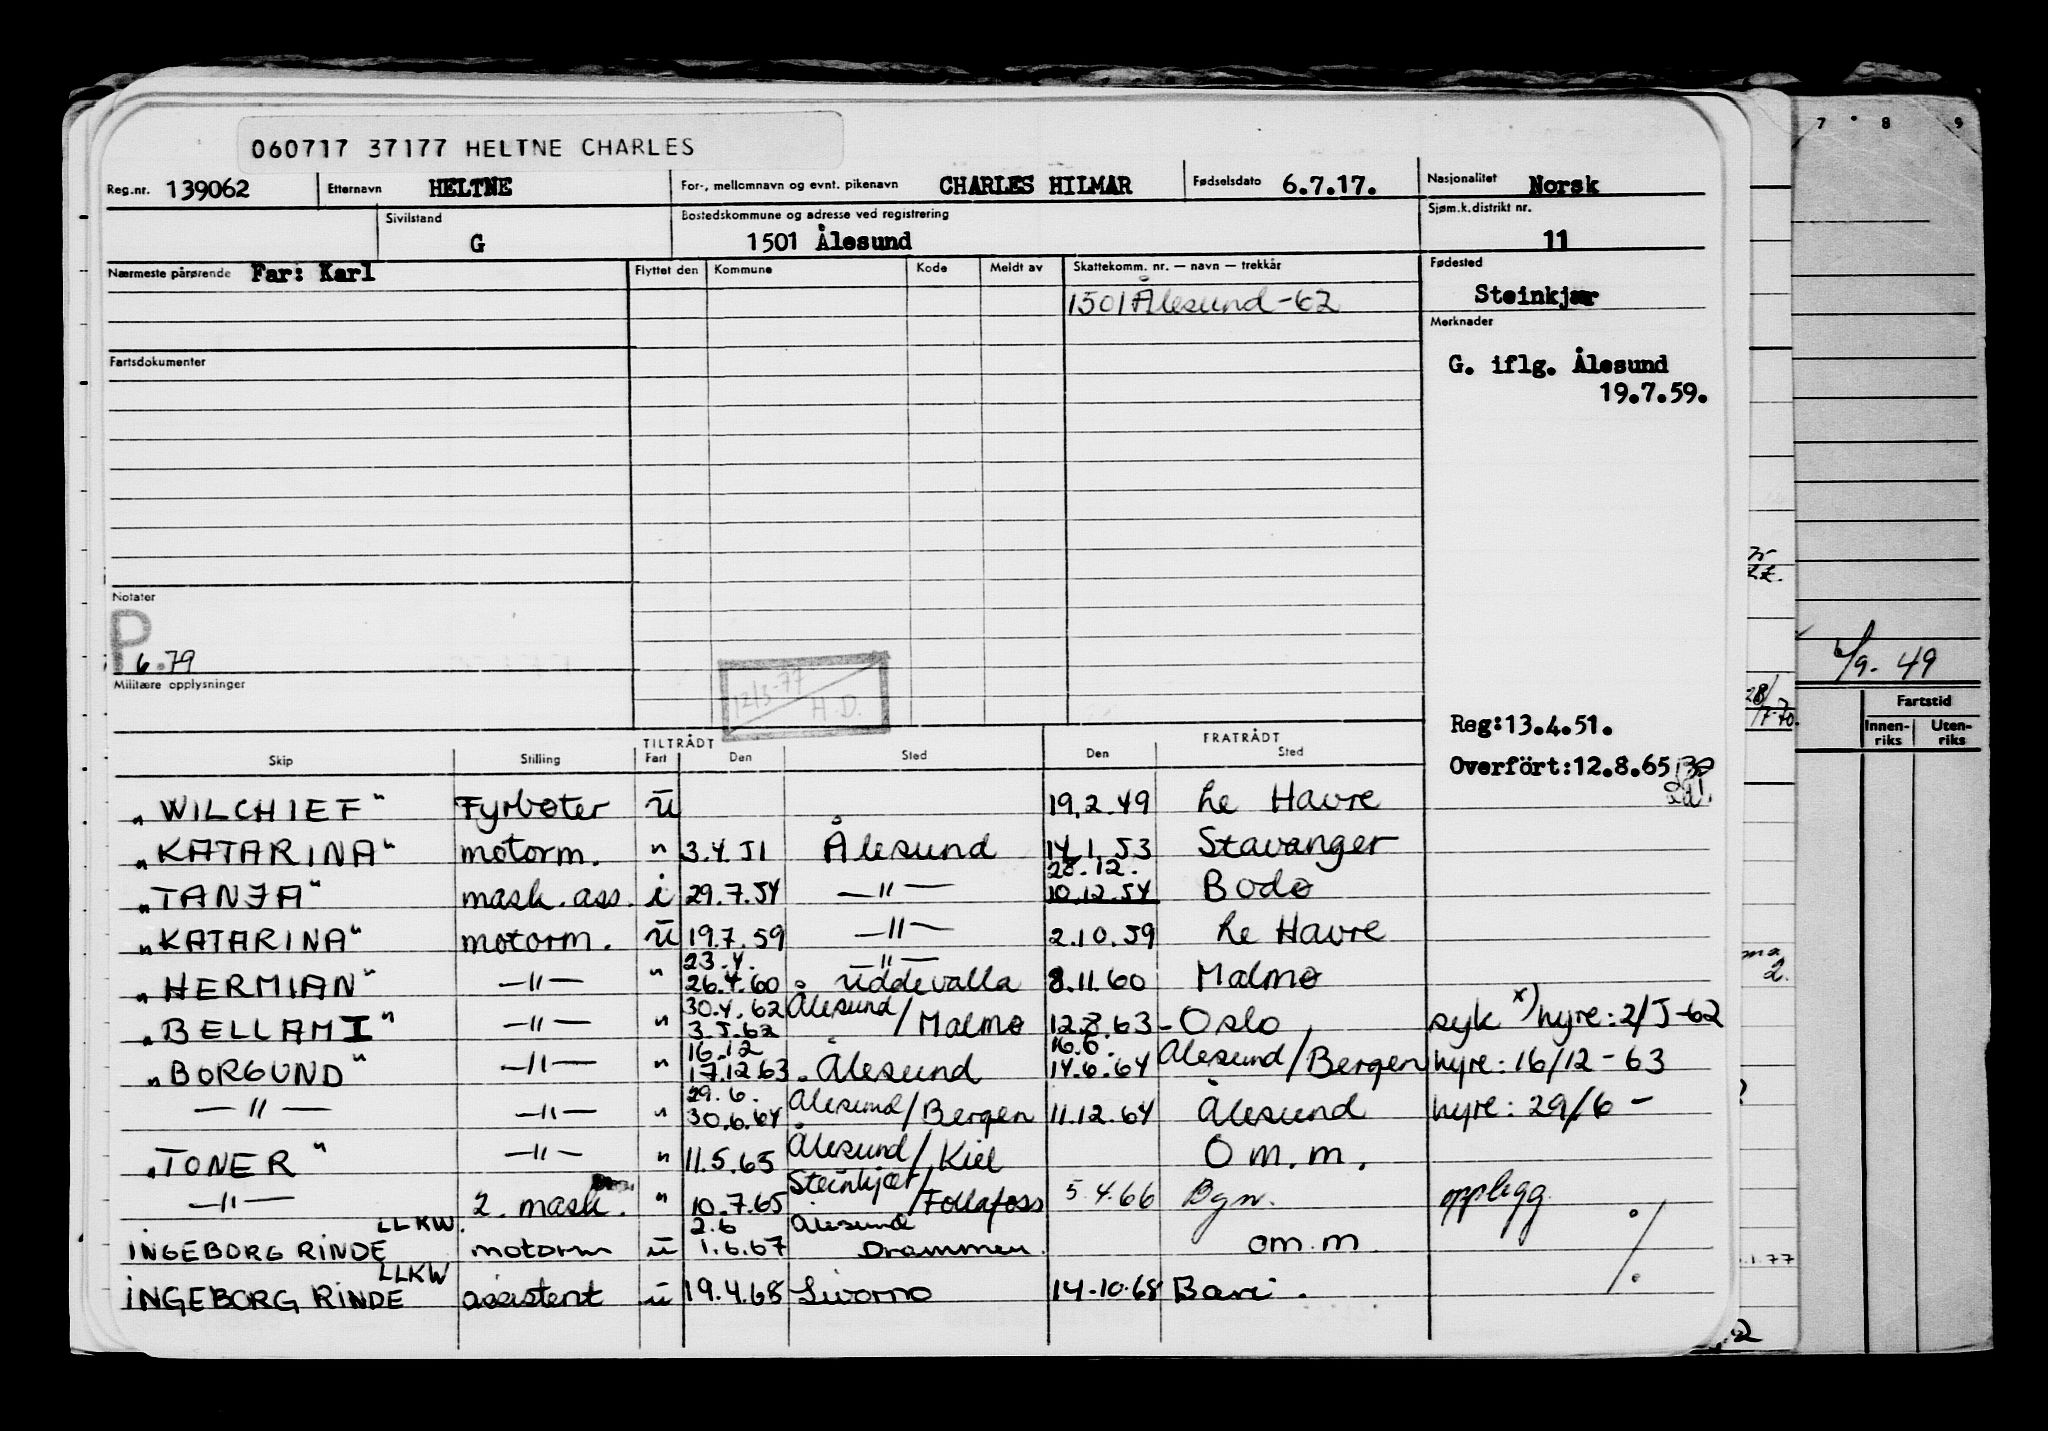 060717 37177 HELTNE CHARLES
Reg.nr. 139062 Etternavn HELTNE For-, mellomnavn og evnt. pikenavn CHARLES HILMAR Fødselsdato 6.7.17. Nasjonalitet Norsk
Sivilstand G Bostedskommune og adresse ved registrering 1501 Ålesund Sjøm.k.distrikt nr. 11
Nærmeste pårørende Far: Karl Flyttet den Kommune Kode Meldt av Skattekomm. nr. — navn — trekkår Fødested
1501 Ålesund-62 Steinkjær
Merknader
Fartsdokumenter
G. iflg. Ålesund
19.7.59.
Notater
P
6.79
Militære opplysninger
12/5-77
H.D.
Reg:13.4.51.
Overført:12.8.65
TILTRÅDT FRATRÅDT
Skip Stilling Fart Den Sted Den Sted
"WILCHIEF" Fyrbøter u 19.2.49 Le Havre
"KATARINA" motorm. " 3.4.51 Ålesund 14.1.53 Stavanger
28.12.
"TANJA" mask.ass. i 29.7.54 —"— 10.12.54 Bodø
"KATARINA" motorm. u 19.7.59 —"— 2.10.59 Le Havre
23.4. —"—
"HERMIAN" —"— " 26.4.60 Uddevalla 8.11.60 Malmø
30.4.62 Ålesund
"BELLAMI" —"— " 3.5.62 /Malmø 12.8.63 Oslo syk x) hyre: 2/5-62
16.12 16.6.
"BORGUND" —"— " 17.12.63 Ålesund 14.6.64 Ålesund/Bergen hyre: 16/12-63
29.6.
—"— —"— " 30.6.64 Ålesund/Bergen 11.12.64 Ålesund hyre: 29/6 -
"TONER" —"— " 11.5.65 Ålesund/Kiel O m.m.
—"— 2. mask. " 10.7.65 Steinkjær/Follafoss 5.4.66 Bgn. opplegg
LLKW. 2.6 Ålesund
INGEBORG RINDE motorm u 1.6.67 Drammen. om.m
LLKW
INGEBORG RINDE assistent u 19.4.68 Livorno 14.10.68 Bari.
7 8 9
6/9. 49
28/7.70.
Fartstid
Innen-riks Uten-riks
1.77